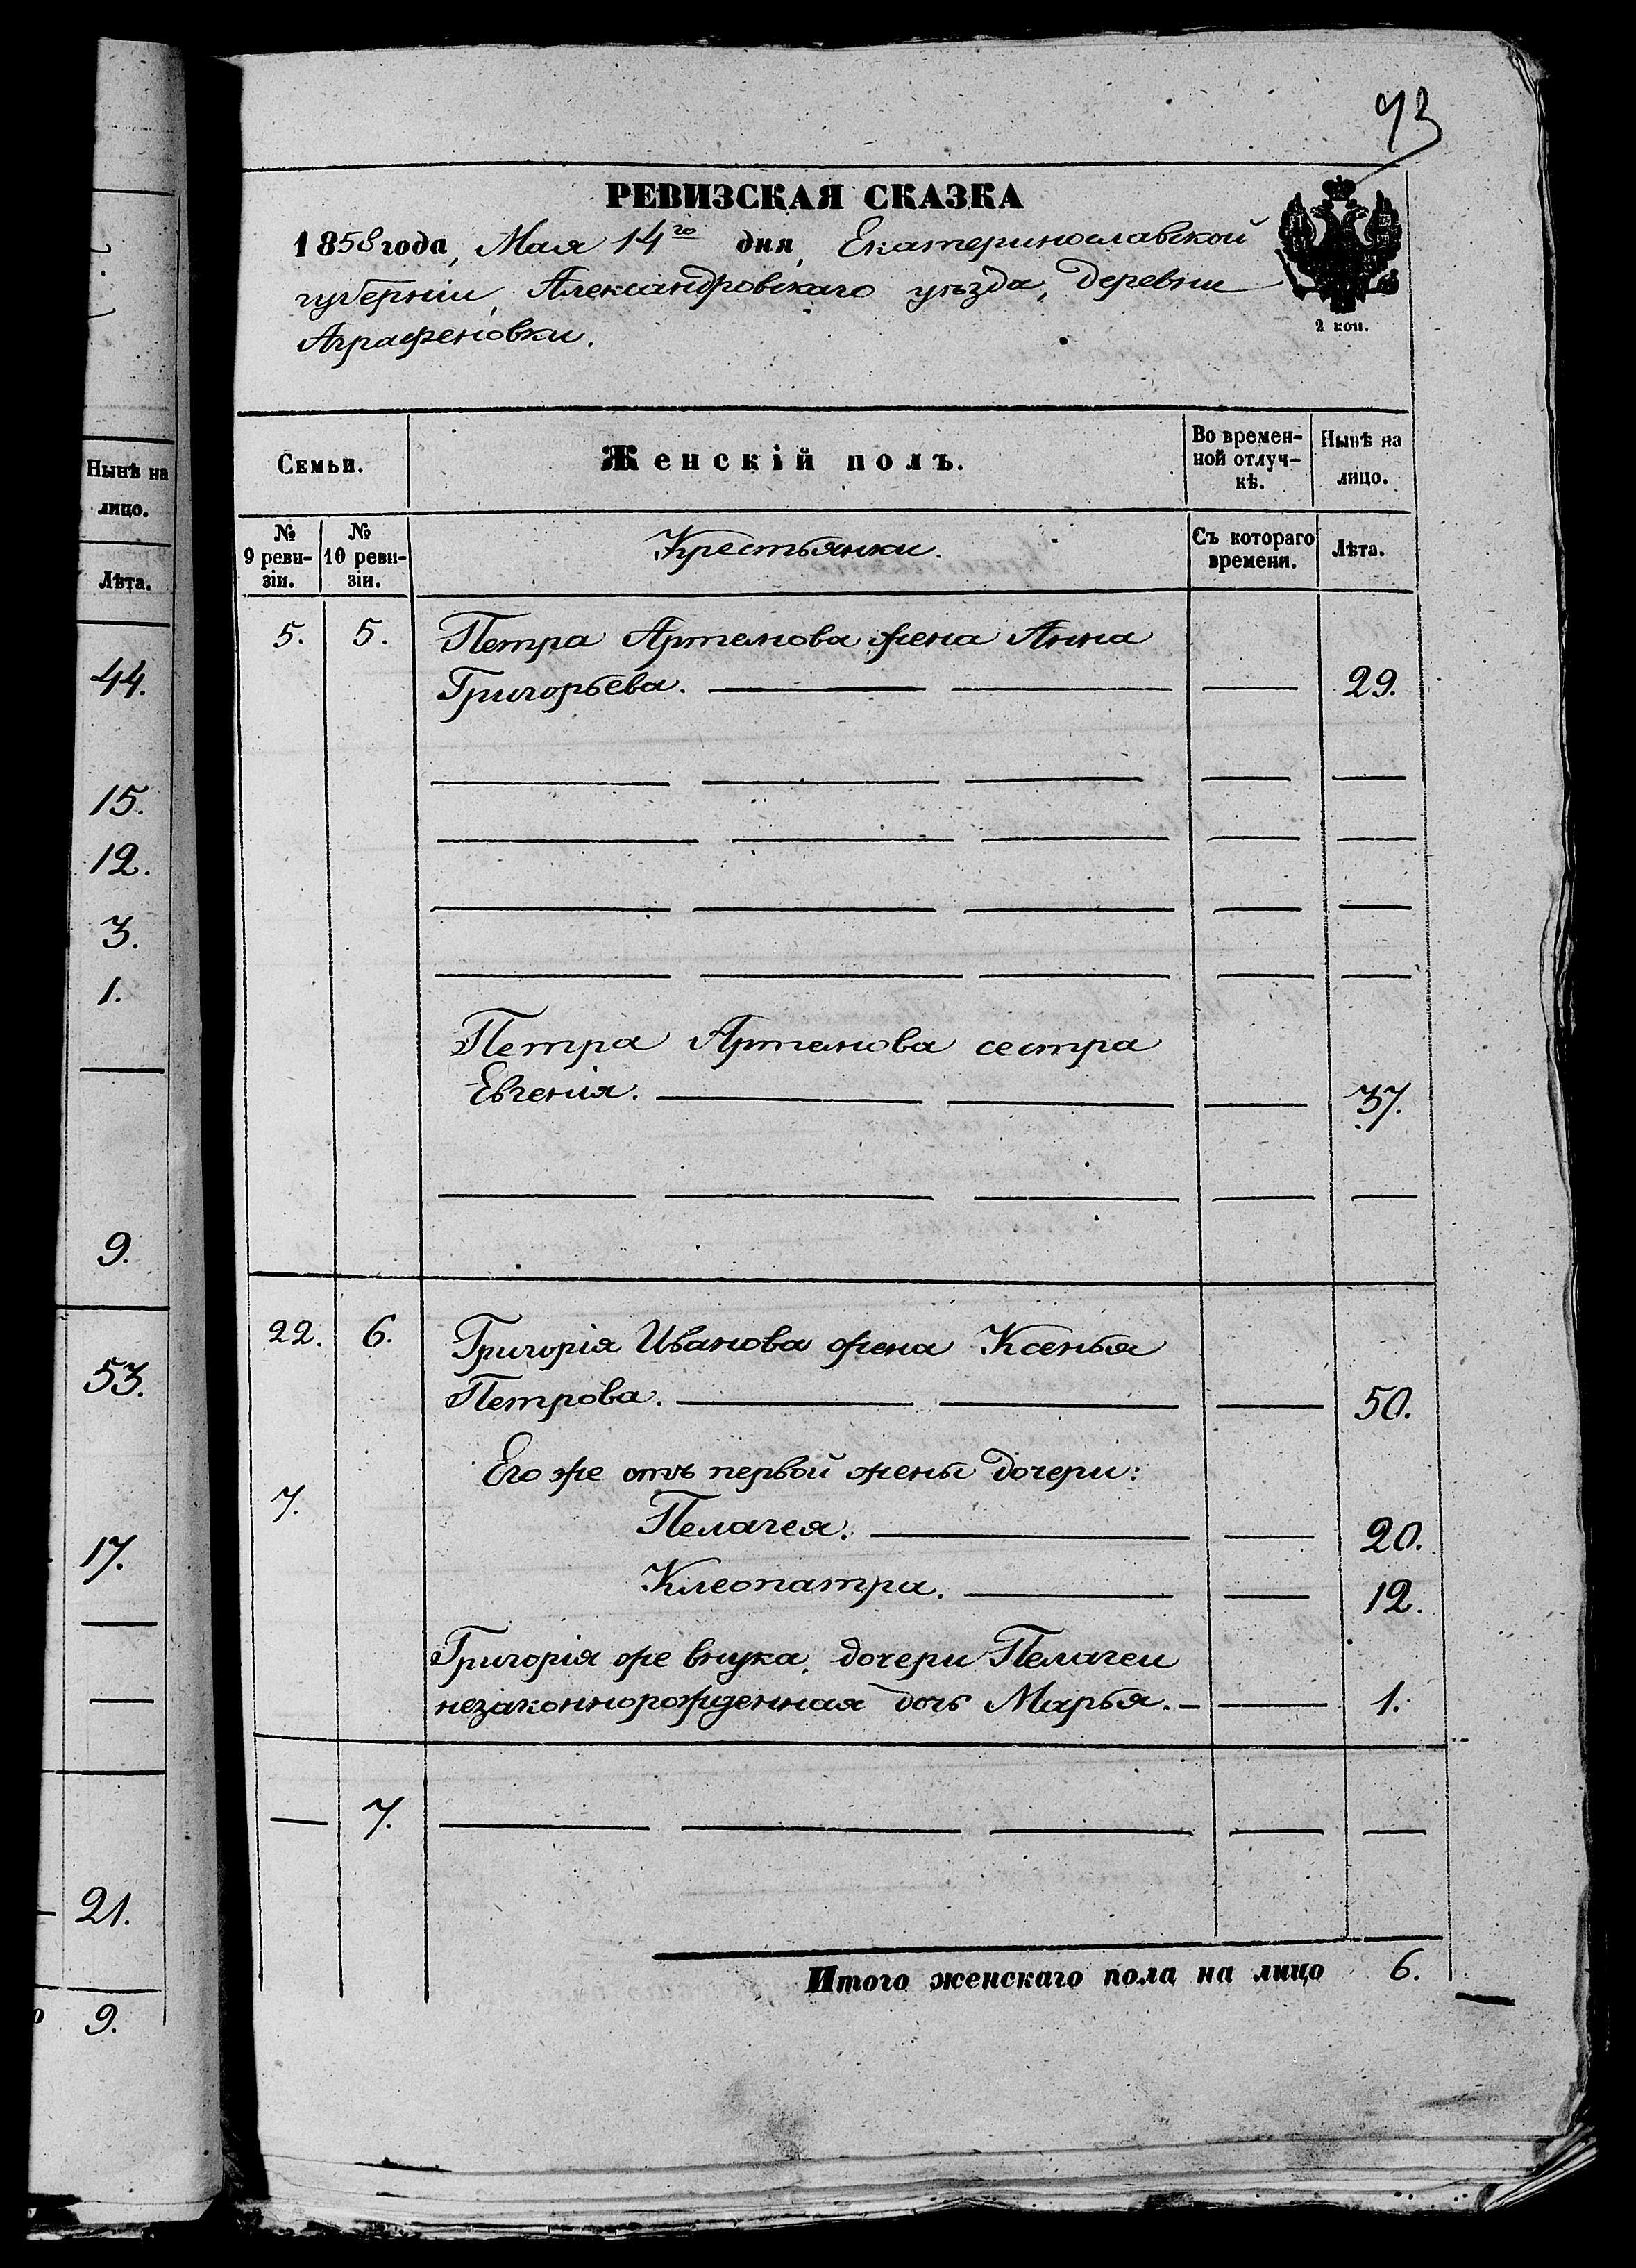 93
РЕВИЗСКАЯ СКАЗКА
1858 года, Мая 14го дня, Екатеринославской
губерніи, Александровскаго уѣзда, деревни
Аграфеновки.
2 коп.
Нынѣ на
лицо.
Лѣта.
44.
15.
12.
3.
1.
9.
53.
17.
21.
9.
Семьи.
Женскій полъ.
Во времен-
ной отлуч-
кѣ.
Нынѣ на
лицо.
№
9 реви-
зіи.
№
10 реви-
зіи.
Крестьянки.
Съ котораго
времени.
Лѣта.
5. 5. Петра Артемова жена Анна
Григорьева. — — — 29.
Петра Артемова сестра
Евгенія. — — — 37.
22. 6. Григорія Иванова жена Ксенья
Петрова. — — — 50.
Его же отъ первой жены дочери:
7. Пелагея. — — 20.
Клеопатра. — — 12.
Григорія же внука, дочери Пелагеи
незаконнорожденная дочь Марья. — — 1.
— 7. — — — — —
Итого женскаго пола на лицо 6.